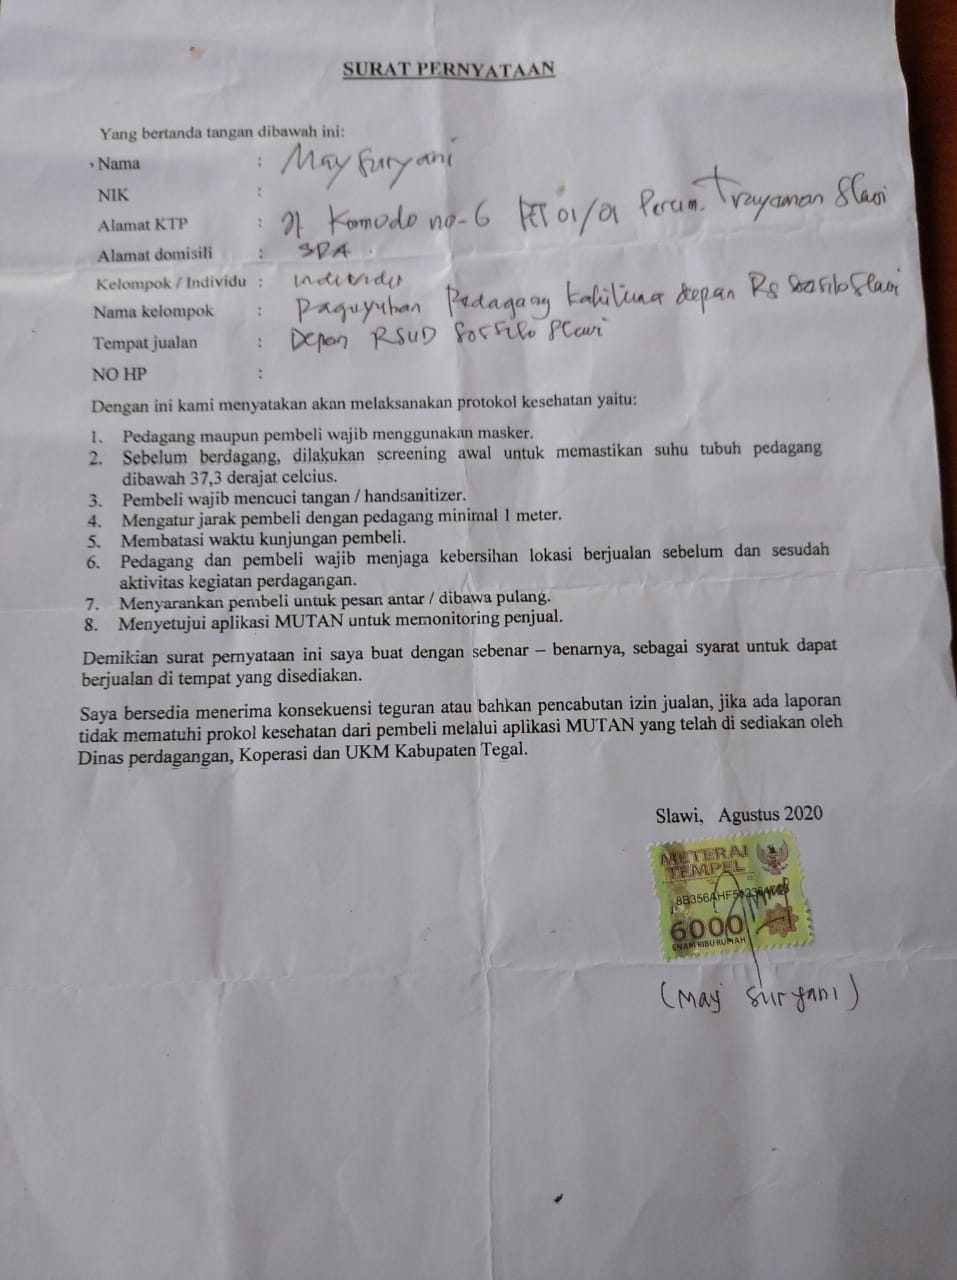 SURAT PERNYATAAN
Yang bertanda tangan dibawah ini:
Nama : May Suryani
NIK :
Alamat KTP : Jl Komodo no-6 RT 01/01 Perum. Trayeman Slawi
Alamat domisili : SDA.
Kelompok / Individu : individu
Nama kelompok : Paguyuban Pedagang Kakilima depan RS Soesilo Slawi
Tempat jualan : Depan RSUD Soesilo Slawi
NO HP :
Dengan ini kami menyatakan akan melaksanakan protokol kesehatan yaitu:
1. Pedagang maupun pembeli wajib menggunakan masker.
2. Sebelum berdagang, dilakukan screening awal untuk memastikan suhu tubuh pedagang
dibawah 37,3 derajat celcius.
3. Pembeli wajib mencuci tangan / handsanitizer.
4. Mengatur jarak pembeli dengan pedagang minimal 1 meter.
5. Membatasi waktu kunjungan pembeli.
6. Pedagang dan pembeli wajib menjaga kebersihan lokasi berjualan sebelum dan sesudah
aktivitas kegiatan perdagangan.
7. Menyarankan pembeli untuk pesan antar / dibawa pulang.
8. Menyetujui aplikasi MUTAN untuk memonitoring penjual.
Demikian surat pernyataan ini saya buat dengan sebenar – benarnya, sebagai syarat untuk dapat
berjualan di tempat yang disediakan.
Saya bersedia menerima konsekuensi teguran atau bahkan pencabutan izin jualan, jika ada laporan
tidak mematuhi prokol kesehatan dari pembeli melalui aplikasi MUTAN yang telah di sediakan oleh
Dinas perdagangan, Koperasi dan UKM Kabupaten Tegal.
Slawi, Agustus 2020
METERAI
TEMPEL
6000
ENAM RIBU RUPIAH
(May Suryani)